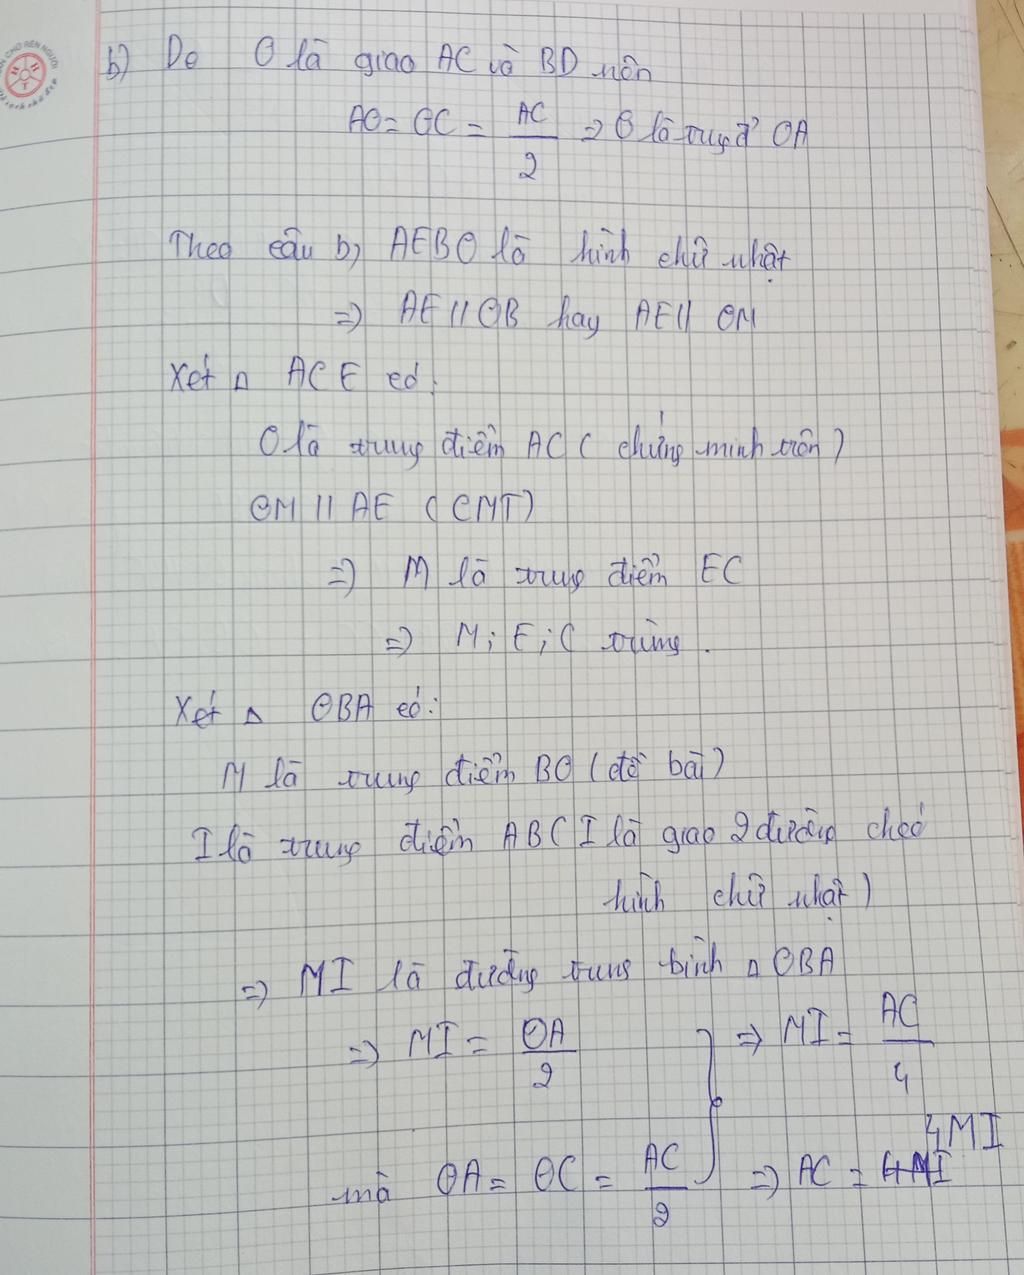 b) Do O là giao AC và BD nên
AO = OC = AC/2 => O là trung đ' OA
Theo câu b) AEBO là hình chữ nhật
=> AE // OB hay AE // OM
Xét Δ ACE có:
O là trung điểm AC ( chứng minh trên)
OM // AE (CMT)
=> M là trung điểm EC
=> M; E; C trùng.
Xét Δ OBA có:
M là trung điểm BO (đề bài)
I là trung điểm AB ( I là giao 2 đường chéo
hình chữ nhật)
=> MI là đường trung bình Δ OBA
=> MI = OA/2 => MI = AC/4
4MI
mà OA = OC = AC/2 => AC = 4MI